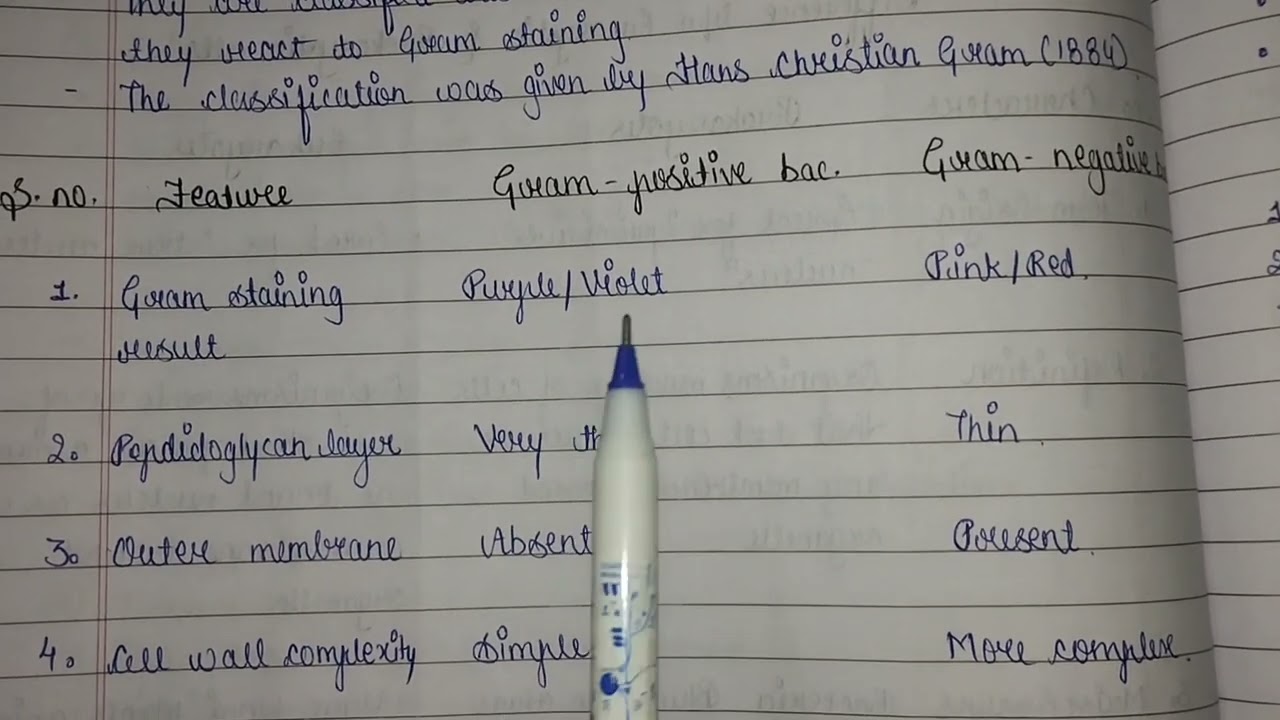 they react to Gram staining
- The classification was given by Hans Christian Gram (1884)
S. no. Feature Gram-positive bac. Gram-negative
1. Gram staining Purple/Violet Pink/Red.
result
2. Pepdidoglycan layer Very Thin.
3. Outer membrane Absent Present.
4. Cell wall complexity Simple More complex.